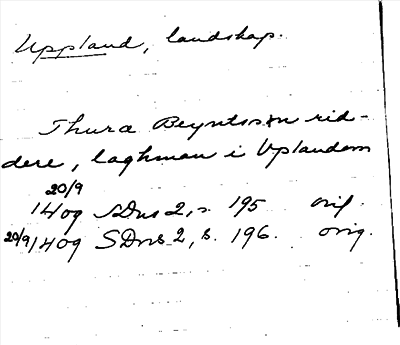 Uppland, landskap.
Thura Beyntsson rid-
dere, laghman i Uplandom
20/9
1409 SDns 2, s. 195 orig.
20/9 1409 SDns 2, s. 196. orig.